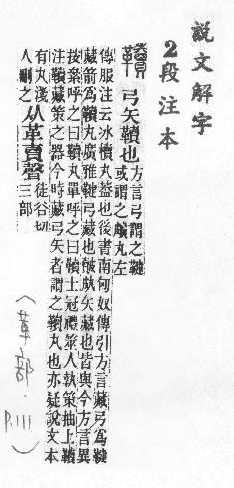 說文解字
2段注本
韇 弓矢韇也
方言弓謂之鞬
或謂之皾丸左
傳服注云冰櫝丸蓋也後書南匈奴傳引方言藏弓爲鞬
藏箭爲韇丸廣雅鞬弓藏也皾㿺矢藏也皆與今方言異
按絫呼之曰韇丸單呼之曰韇士冠禮筮人執筴抽上韇
注韇藏筴之器今時藏弓矢者謂之韇丸也亦疑說文本
有丸淺
人刪之
从革𧶠聲
徒谷切
三部
(革部. P.111)